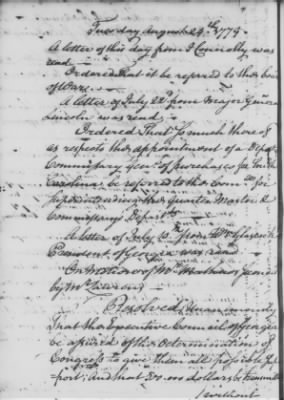 Tuesday August 24th 1779
A letter of this day from J Connolly was
read
Ordered That it be referred to the board
of War.
A letter of July 22d from major General
Lincoln was read
Ordered That so much thereof
as respects the appointment of a Deputy
Commissary Genl of purchases for South
Carolina be referred to the comee for
superintending the Quarter Master &
Commissary's Departts
A letter of July 10th from
President of Georgia was read
On Motion of Mr Mathews seconded
by Mr
Resolved Unanimously
That the Executive Council of Georgia
be assured of the Determination of
Congress to give them all possible Sup
port, and that dollars be transmit